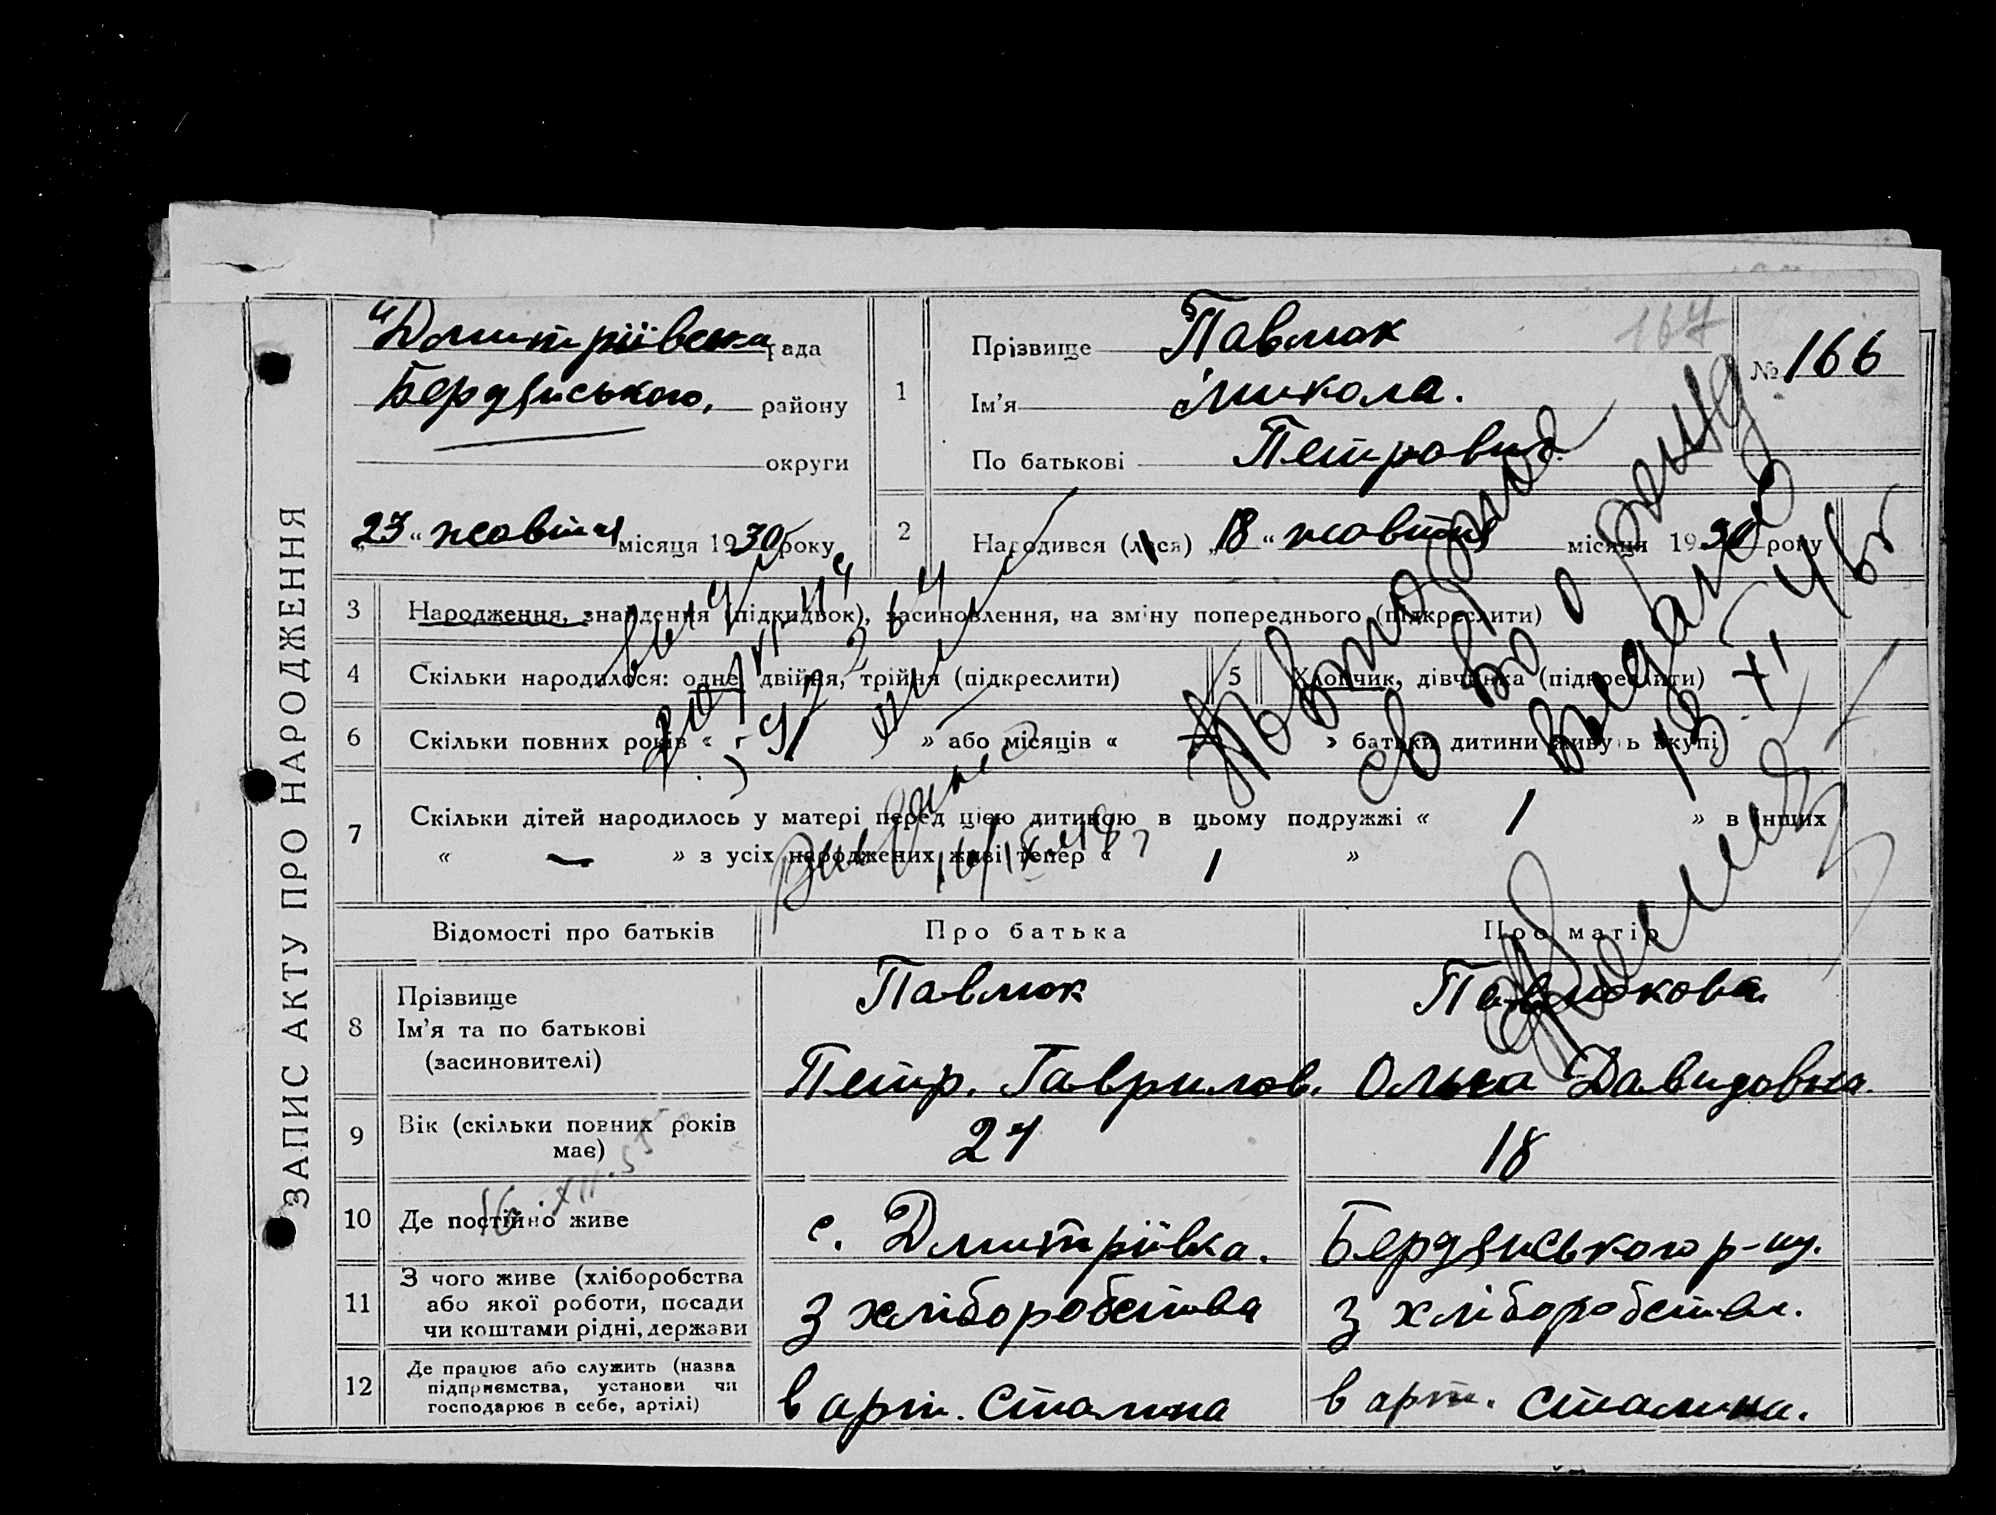 ЗАПИС АКТУ ПРО НАРОДЖЕННЯ
Дмитріївська рада
Бердянського, району
округи
„23“ жовтня місяця 1930 року
1
Прізвище Павлюк
Ім'я Микола.
По батькові Петрович
167
№ 166
2
Народився (лася) „18“ жовтня місяця 1930 року
3 Народження, знайдення (підкидьок), засиновлення, на зміну попереднього (підкреслити)
4 Скільки народилося: одне, двійня, трійня (підкреслити)
5 Хлопчик, дівчинка (підкреслити)
6 Скільки повних років « » або місяців « » батьки дитини живуть вкупі
7 Скільки дітей народилось у матері перед цією дитиною в цьому подружжі « 1 » в інших
« — » з усіх народжених живі тепер « 1 »
Повторное
св во о рожд
выдано
13.XI 46г
16.XII.55
Відомості про батьків
Про батька
Про матір
8 Прізвище
Ім'я та по батькові
(засиновителі)
Павлюк
Петр. Гаврилов.
Павлюкова
Ольга Давидовна.
9 Вік (скільки повних років
має)
27
18
10 Де постійно живе
с. Дмитріївка.
Бердянського р-ну.
11 З чого живе (хліборобства
або якої роботи, посади
чи коштами рідні, держави
З хліборобства
З хліборобства.
12 Де працює або служить (назва
підприємства, установи чи
господарює в себе, артілі)
в арт. Сталина
в арт. Сталина.